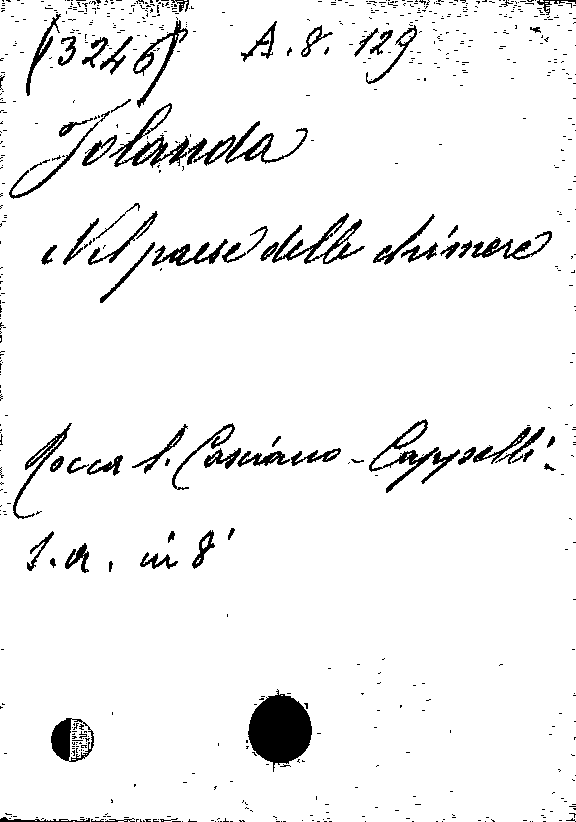 (3246) A. 8. 129
Jolanda
Nel paese delle chimere
Rocca S. Casciano - Cappelli -
S. a. in 8°